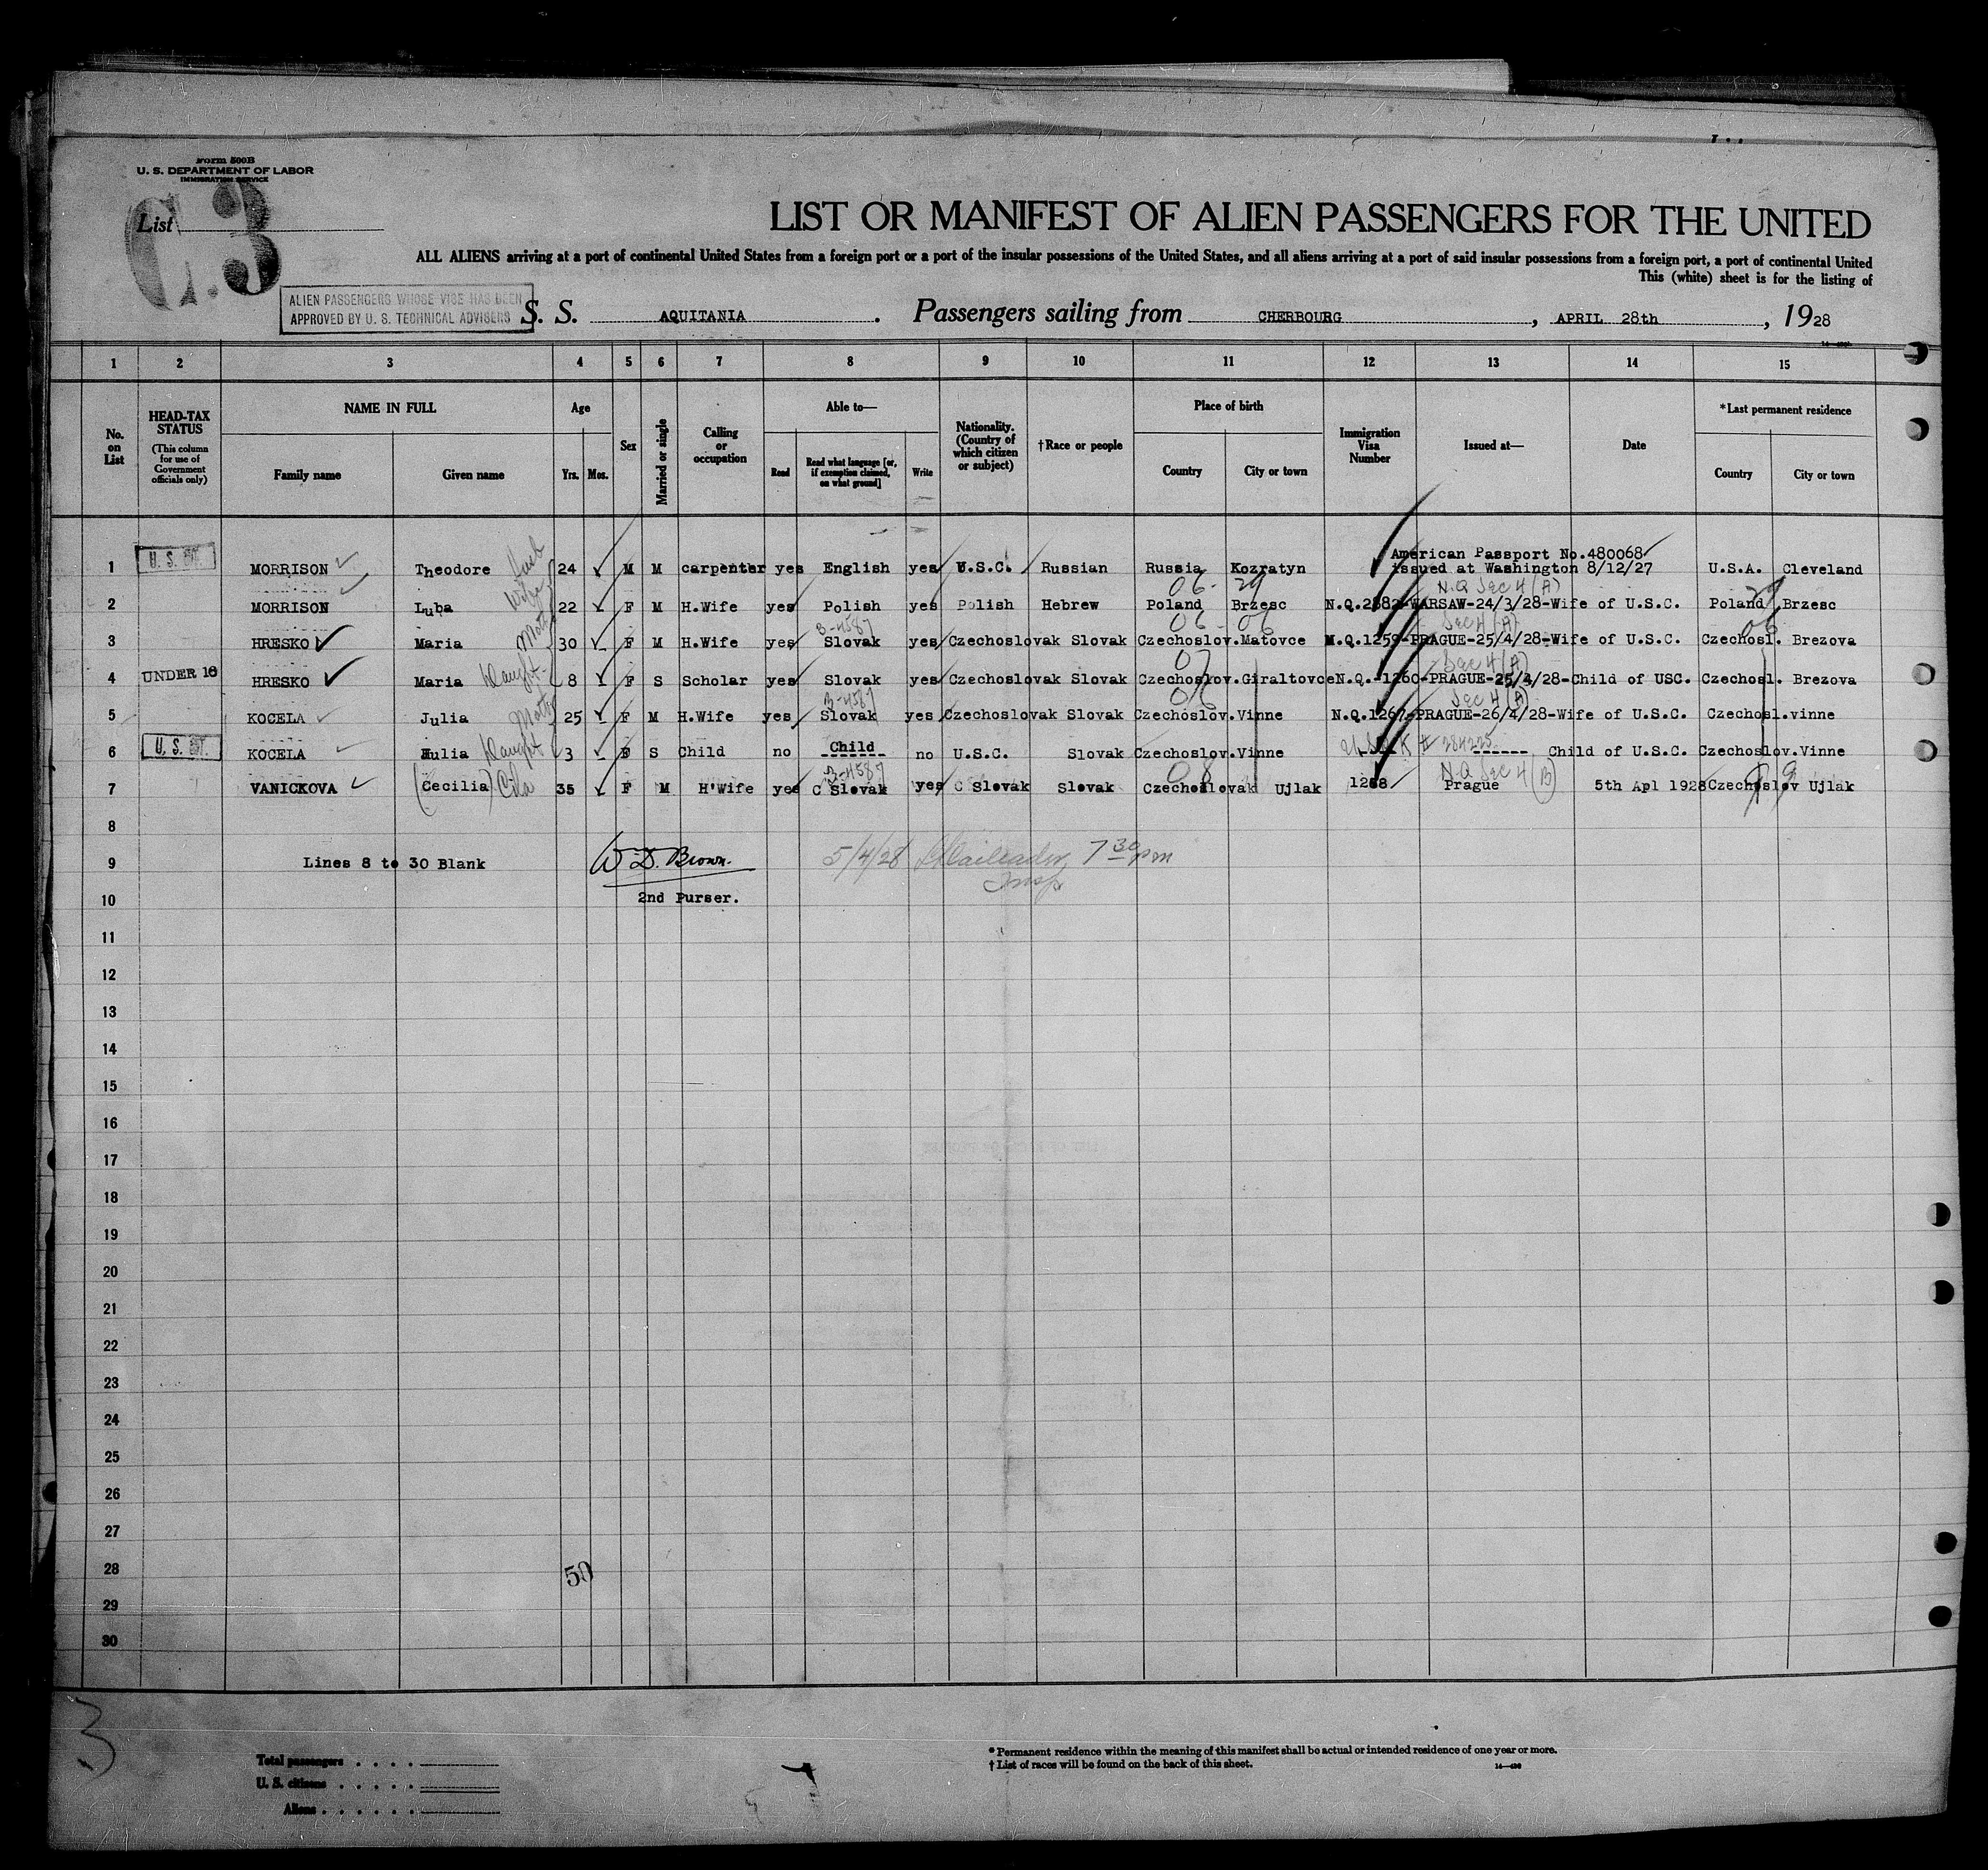 Form 500B
U. S. DEPARTMENT OF LABOR
IMMIGRATION SERVICE
List
C.3
LIST OR MANIFEST OF ALIEN PASSENGERS FOR THE UNITED
ALL ALIENS arriving at a port of continental United States from a foreign port or a port of the insular possessions of the United States, and all aliens arriving at a port of said insular possessions from a foreign port, a port of continental United
This (white) sheet is for the listing of
ALIEN PASSENGERS WHOSE VISE HAS BEEN
APPROVED BY U. S. TECHNICAL ADVISERS
S. S. AQUITANIA. Passengers sailing from CHERBOURG, APRIL 28th, 1928
1 2 3 4 5 6 7 8 9 10 11 12 13 14 15
No. on List
HEAD-TAX STATUS
(This column for use of Government officials only)
NAME IN FULL
Family name Given name
Age
Yrs. Mos.
Sex
Married or single
Calling or occupation
Able to—
Read Read what language [or, if exemption claimed, on what ground] Write
Nationality. (Country of which citizen or subject)
†Race or people
Place of birth
Country City or town
Immigration Visa Number
Issued at—
Date
*Last permanent residence
Country City or town
American Passport No.480068
1 U. S. MORRISON Theodore 24 M M carpenter yes English yes U.S.C. Russian Russia Kozratyn issued at Washington 8/12/27 U.S.A. Cleveland
06- 29 N.Q Sec 4 (A)
2 MORRISON Luba Wife 22 F M H.Wife yes Polish yes Polish Hebrew Poland Brzesc N.Q.2882-WARSAW-24/3/28-Wife of U.S.C. Poland Brzesc
B-4587 06- 06 Sec 4 (A) 06
3 HRESKO Maria Moth 30 F M H.Wife yes Slovak yes Czechoslovak Slovak Czechoslov.Matovce N.Q.1259-PRAGUE-25/4/28-Wife of U.S.C. Czechosl. Brezova
Sec 4 (A)
4 UNDER 16 HRESKO Maria Daught 8 F S Scholar yes Slovak yes Czechoslovak Slovak Czechoslov.Giraltovce N.Q.-1260-PRAGUE-25/4/28-Child of USC. Czechosl. Brezova
B-4587 Sec 4 (A)
5 KOCELA Julia Moth 25 F M H.Wife yes Slovak yes Czechoslovak Slovak Czechoslov.Vinne N.Q.1267-PRAGUE-26/4/28-Wife of U.S.C. Czechosl.vinne
6 U. S. KOCELA Julia Daught 3 F S Child no Child no U.S.C. Slovak Czechoslov.Vinne Child of U.S.C. Czechoslov.Vinne
B-4587 08 N.Q Sec 4 (B)
7 VANICKOVA (Cecilia) 35 F M H'Wife yes C Slovak yes C Slovak Slovak Czechoslovak Ujlak 1268 Prague 5th Apl 1928 Czechoslov Ujlak
8
9 Lines 8 to 30 Blank W. D. Brown. 5/4/28 7 30 pm
Insp
10 2nd Purser.
11
12
13
14
15
16
17
18
19
20
21
22
23
24
25
26
27
28 50
29
30
3
Total passengers
U. S. citizens
Aliens
* Permanent residence within the meaning of this manifest shall be actual or intended residence of one year or more.
† List of races will be found on the back of this sheet.